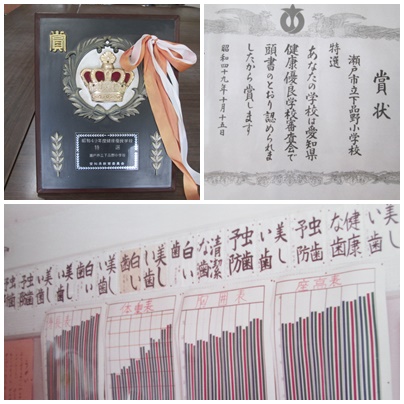 賞
特選
瀬戸市立下品野小学校
賞状
特選
瀬戸市立下品野小学校
あなたの学校は愛知県
健康優良学校審査会で
頭書のとおり認められま
したから賞します
昭和四十九年十月十五日
美しい歯
健康な歯
虫歯予防
美しい歯
虫歯予防
清潔な歯
白い歯
美しい歯
白い歯
美しい歯
美しい歯
虫歯予防
虫歯予防
体重表
胸囲表
座高表